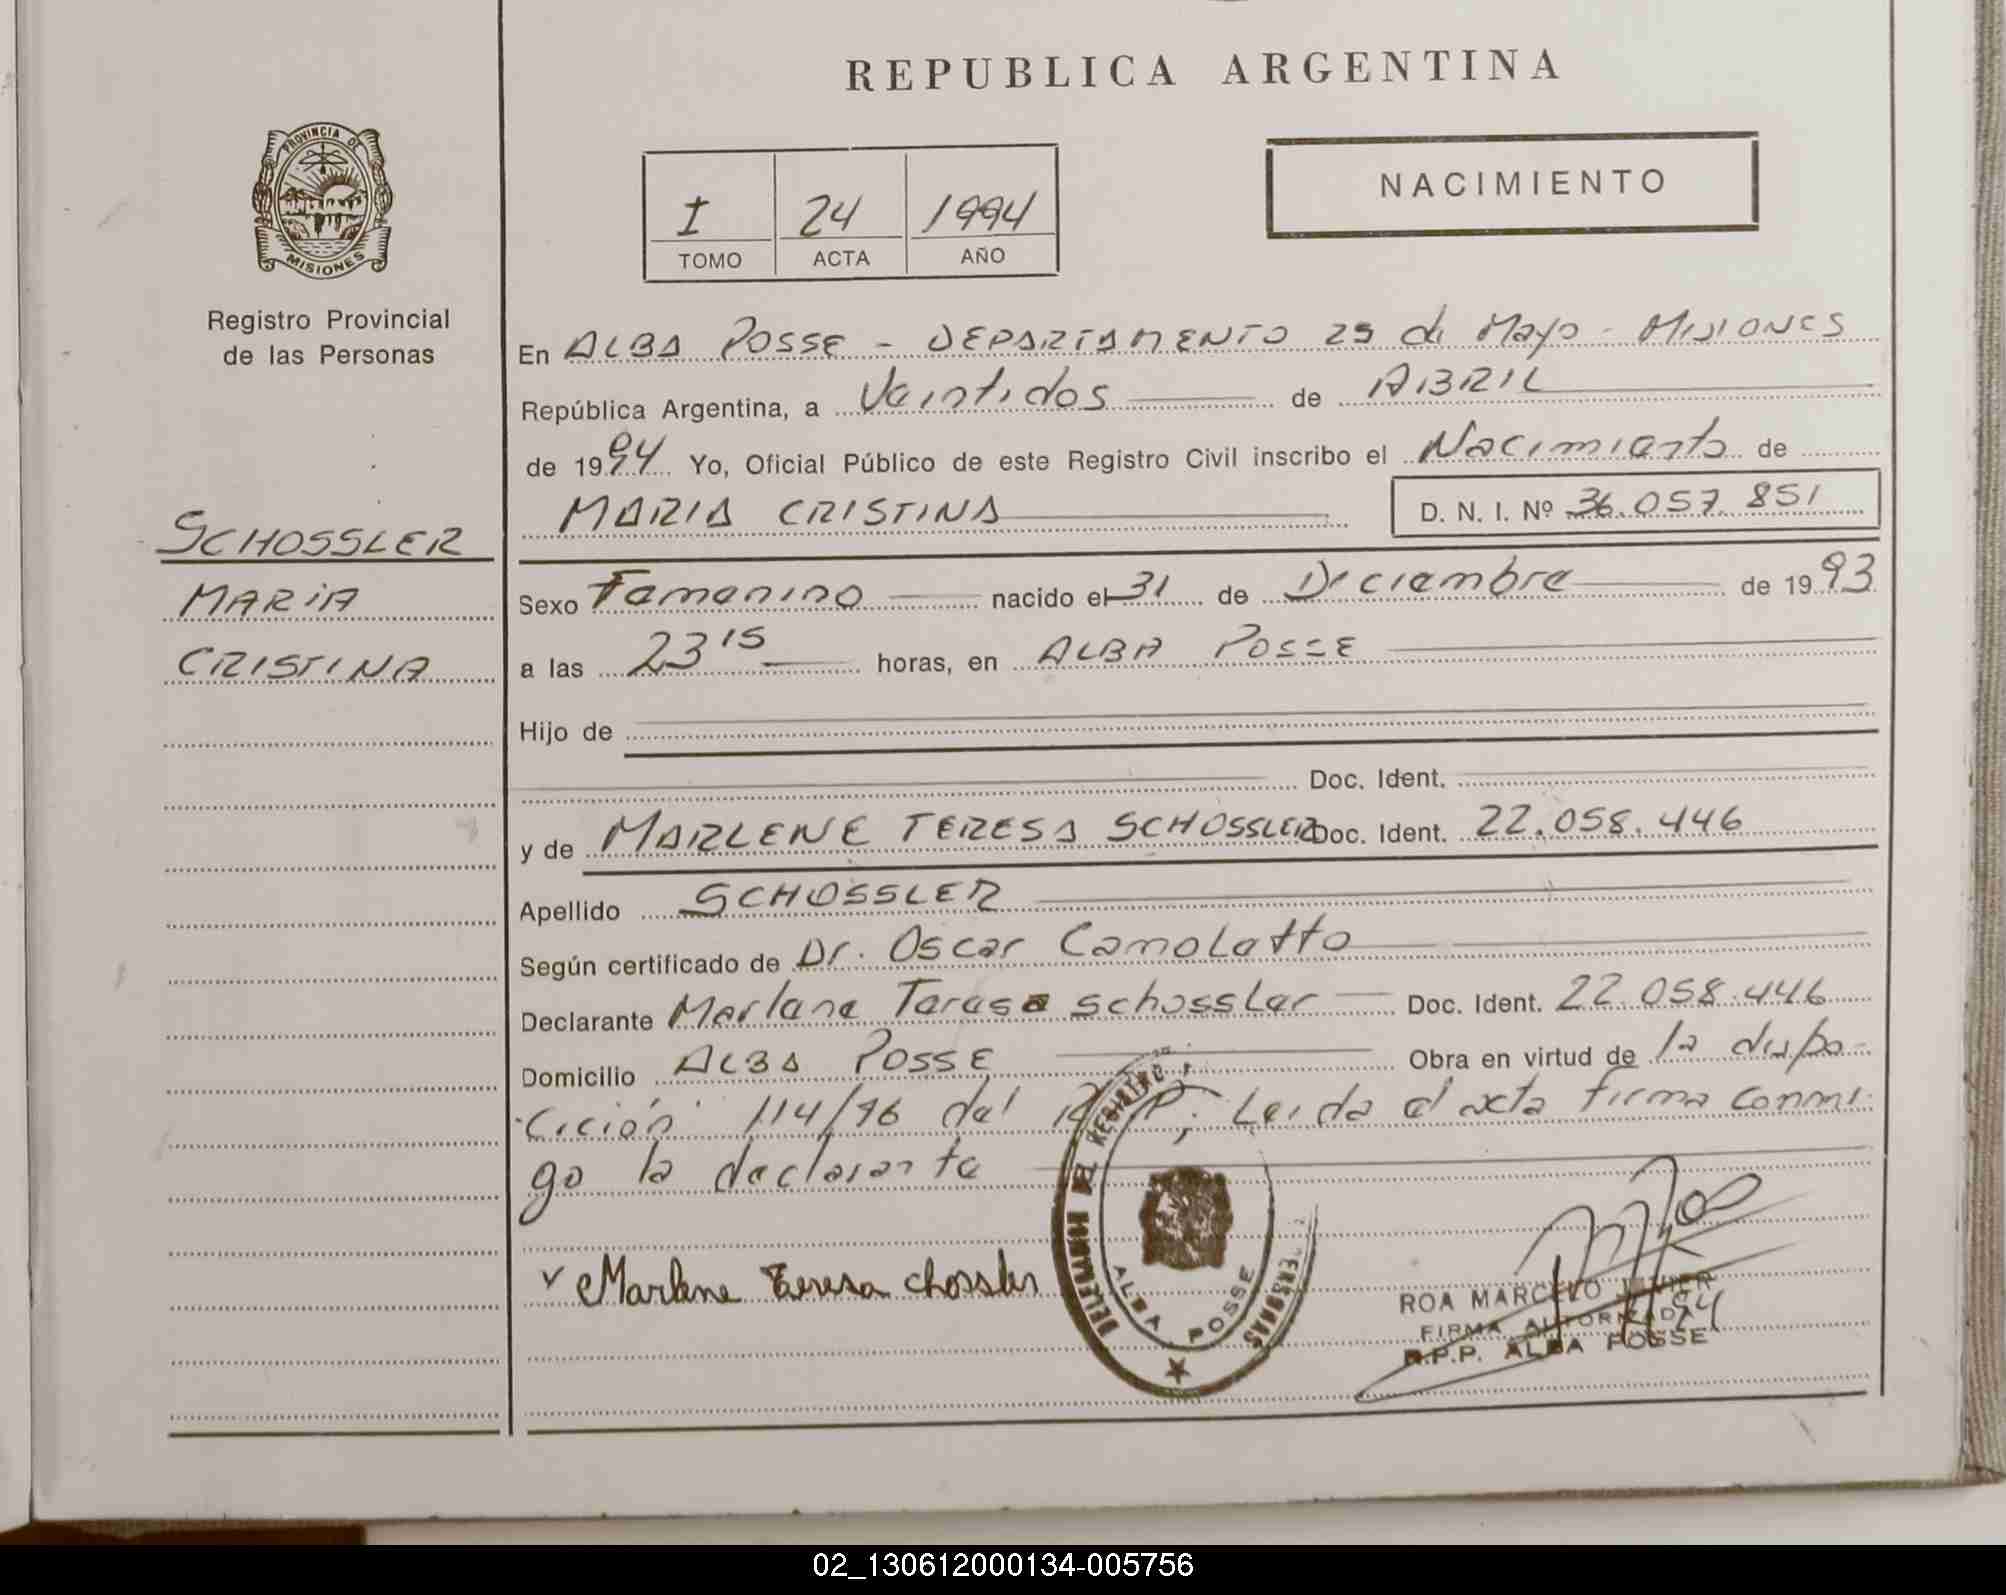 REPUBLICA ARGENTINA
PROVINCIA DE
MISIONES
Registro Provincial
de las Personas
I 24 1994
TOMO ACTA AÑO
NACIMIENTO
En ALBA POSSE - DEPARTAMENTO 25 de Mayo - MISIONES
República Argentina, a Veintidos de ABRIL
de 1994 Yo, Oficial Público de este Registro Civil inscribo el Nacimiento de
MARIA CRISTINA D. N. I. Nº 36.057.851
SCHOSSLER
MARIA
CRISTINA
Sexo Femenino nacido el 31 de Diciembre de 1993
a las 23 15 horas, en ALBA POSSE
Hijo de
Doc. Ident.
y de MARLENE TERESA SCHOSSLER Doc. Ident. 22.058.446
Apellido SCHOSSLER
Según certificado de Dr. Oscar Camolatto
Declarante Marlene Teresa Schossler Doc. Ident. 22.058.446
Domicilio ALBA POSSE Obra en virtud de la dispo-
sición 114/76 del R.P.P; Leida el acta firma conmi-
go la declarante
Marlene Teresa chossler
DEL REGISTRO
PERSONAS
ALBA POSSE
ROA MARCELO JAVIER
FIRMA AUTORIZADA
R.P.P. ALBA POSSE
02_130612000134-005756